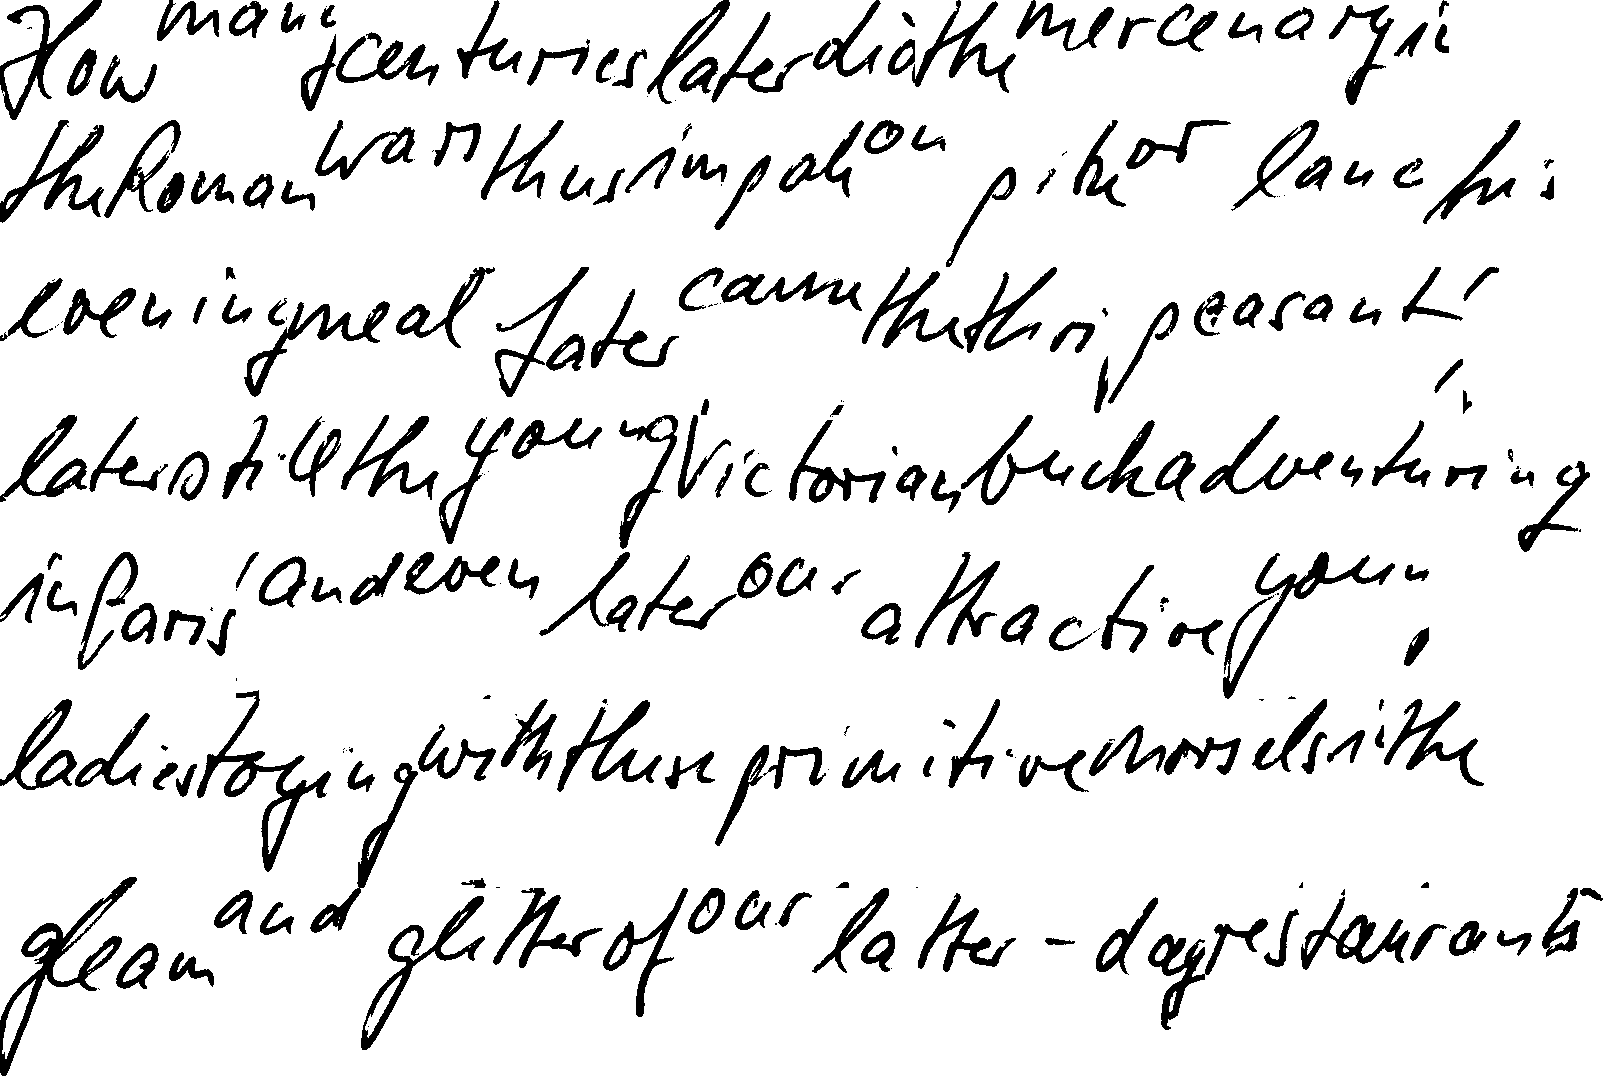 How many centuries later did the mercenary in
the Roman wars thus impale on pike or lance his
evening meal Later came the thri, peasant,
later still the young Victorian buck adventuring
in Paris, and even later our attractive youn,
ladies toying with these primitive morsels i the
gleam and glitter of our latter-day restaurants